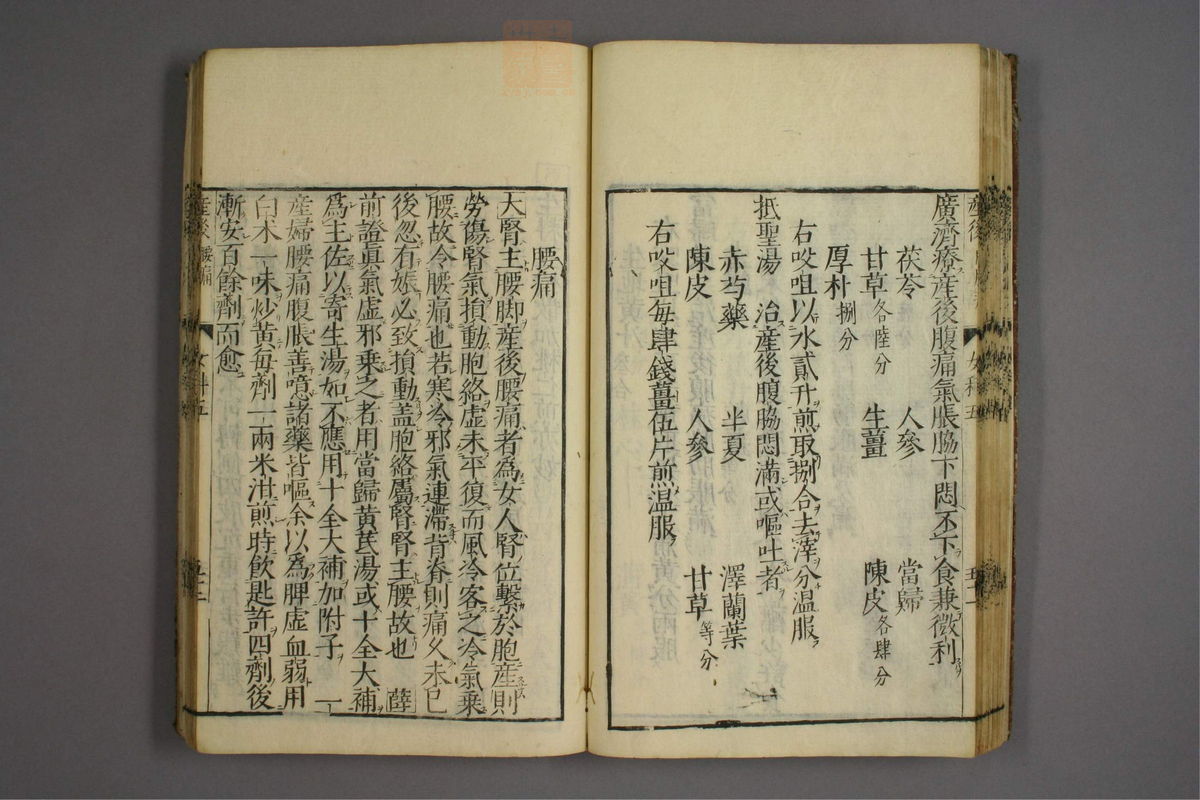 廣濟療産後腹痛氣脹脇下悶不下食兼微利
茯苓 人參 當歸
甘草各陸分 生薑 陳皮各肆分
厚朴捌分
右㕮咀以水貳升煎取捌合去滓分温服
抵聖湯 治産後腹脇悶滿或嘔吐者
赤芍藥 半夏 澤蘭葉
陳皮 人參 甘草等分
右㕮咀每肆錢薑伍片煎温服
腰痛
夫腎主腰脚産後腰痛者為女人腎位繫於胞産則
勞傷腎氣損動胞絡虛未平復而風冷客之冷氣乗
腰故令腰痛也若寒冷邪氣連滯背脊則痛久未已
後忽有娠必致損動盖胞絡屬腎腎主腰故也 薛
前證眞氣虛邪乗之者用當歸黃芪湯或十全大補
爲主佐以寄生湯如不應用十全大補加附子 一
産婦腰痛腹脹善噫諸藥皆嘔余以爲脾虛血弱用
白朮一味炒黃每劑一兩米泔煎時飲匙許四劑後
漸安百餘劑而愈
産後 腰痛
女科五